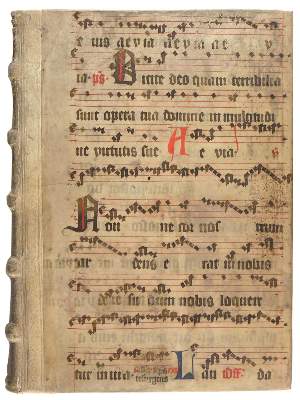 e ius aevia aevia ae v
ia ps Dicite deo quam terribilia
sunt opera tua domine in multitudi
ne virtutis tue A e via
Non ne cor nos trum
ar dens e rat in nobis
dum nobis loquere
tur in via Lau off da